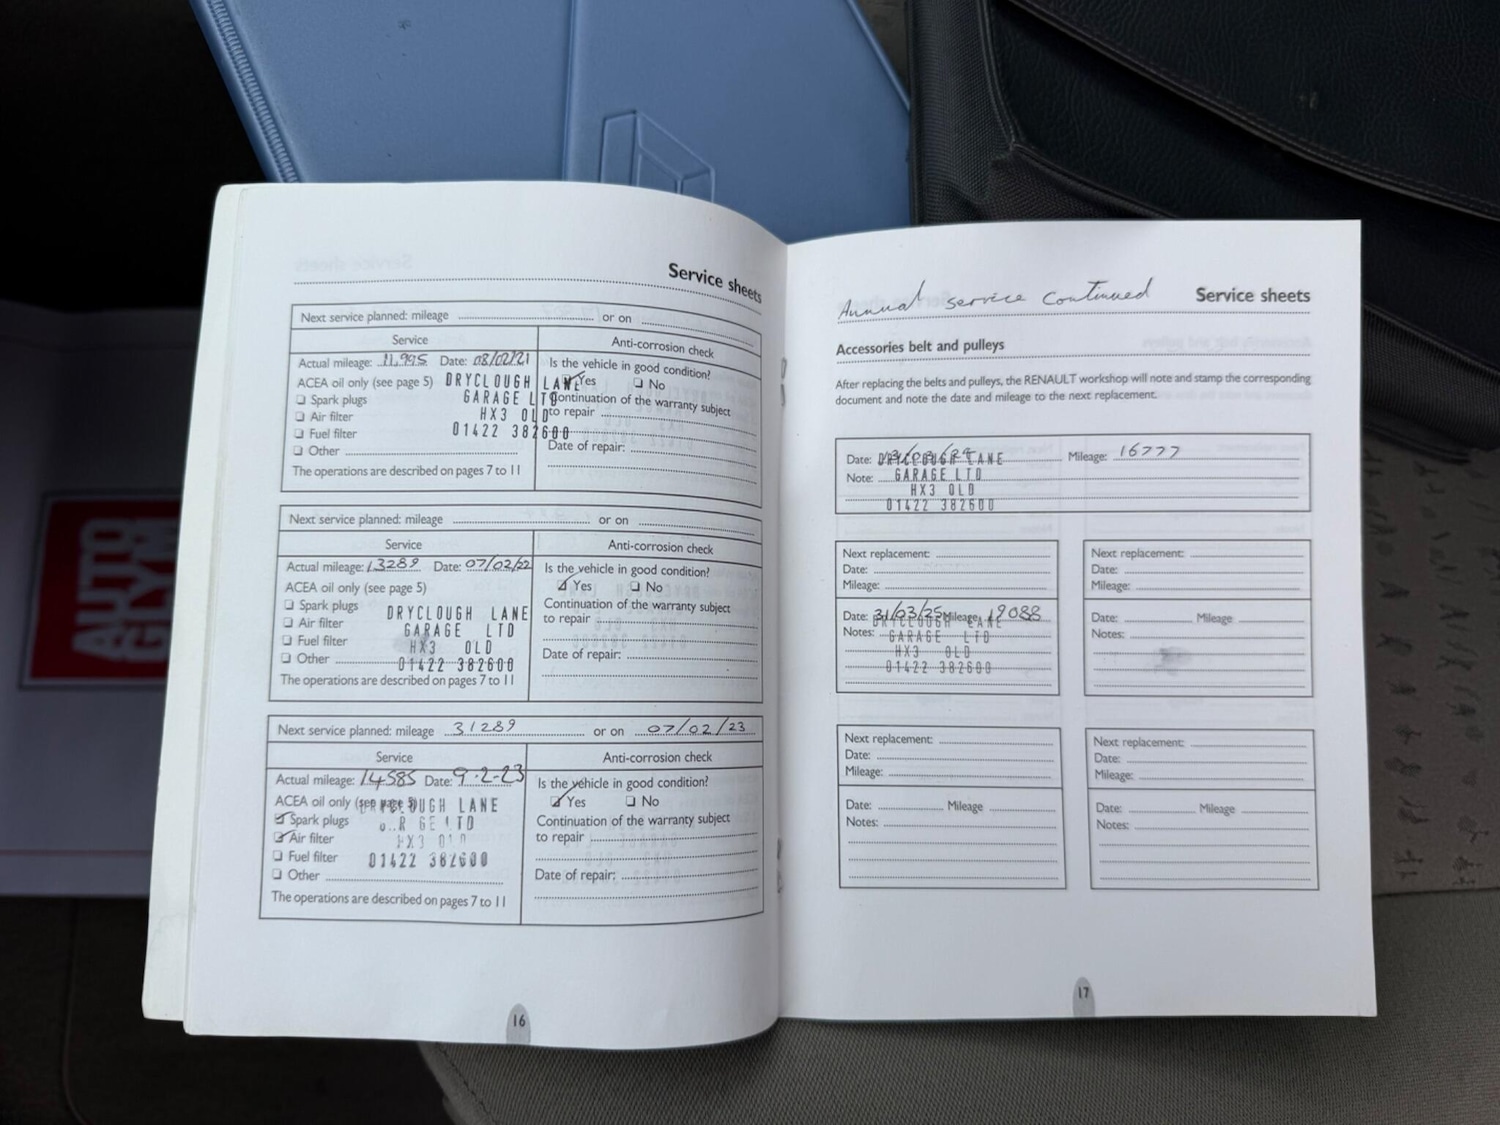 Service sheets
Next service planned: mileage or on
Service
Anti-corrosion check
Actual mileage: 11,995 Date: 08/02/21
ACEA oil only (see page 5)
Spark plugs
Air filter
Fuel filter
Other
The operations are described on pages 7 to 11
DRYCLOUGH LANE
GARAGE LTD
HX3 0LD
01422 382600
Is the vehicle in good condition?
Yes No
Continuation of the warranty subject
to repair
Date of repair:
Next service planned: mileage or on
Service
Anti-corrosion check
Actual mileage: 13289 Date: 07/02/22
ACEA oil only (see page 5)
Spark plugs
Air filter
Fuel filter
Other
The operations are described on pages 7 to 11
DRYCLOUGH LANE
GARAGE LTD
HX3 0LD
01422 382600
Is the vehicle in good condition?
Yes No
Continuation of the warranty subject
to repair
Date of repair:
Next service planned: mileage 31289 or on 07/02/23
Service
Anti-corrosion check
Actual mileage: 14585 Date: 9-2-23
ACEA oil only (see page 5)
Spark plugs
Air filter
Fuel filter
Other
The operations are described on pages 7 to 11
DRYCLOUGH LANE
LTD
HX3
01422 382600
Is the vehicle in good condition?
Yes No
Continuation of the warranty subject
to repair
Date of repair:
16
Annual service continued
Service sheets
Accessories belt and pulleys
After replacing the belts and pulleys, the RENAULT workshop will note and stamp the corresponding
document and note the date and mileage to the next replacement.
Date: Mileage: 16777
Note:
DRYCLOUGH LANE
GARAGE LTD
HX3 0LD
01422 382600
Next replacement:
Date:
Mileage:
Date: 31/03/25 Mileage 19088
Notes:
DRYCLOUGH LANE
GARAGE LTD
HX3 0LD
01422 382600
Next replacement:
Date:
Mileage:
Date: Mileage
Notes:
Next replacement:
Date:
Mileage:
Date: Mileage
Notes:
Next replacement:
Date:
Mileage:
Date: Mileage
Notes:
17
AUTO
GLYM